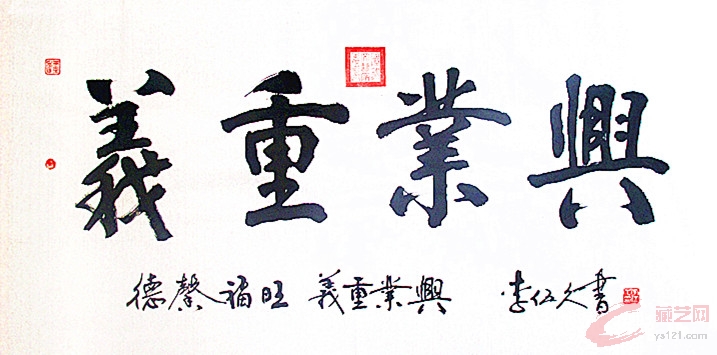 義重業興
德馨福旺 義重業興 李伍久書
藏艺网
ys121.com